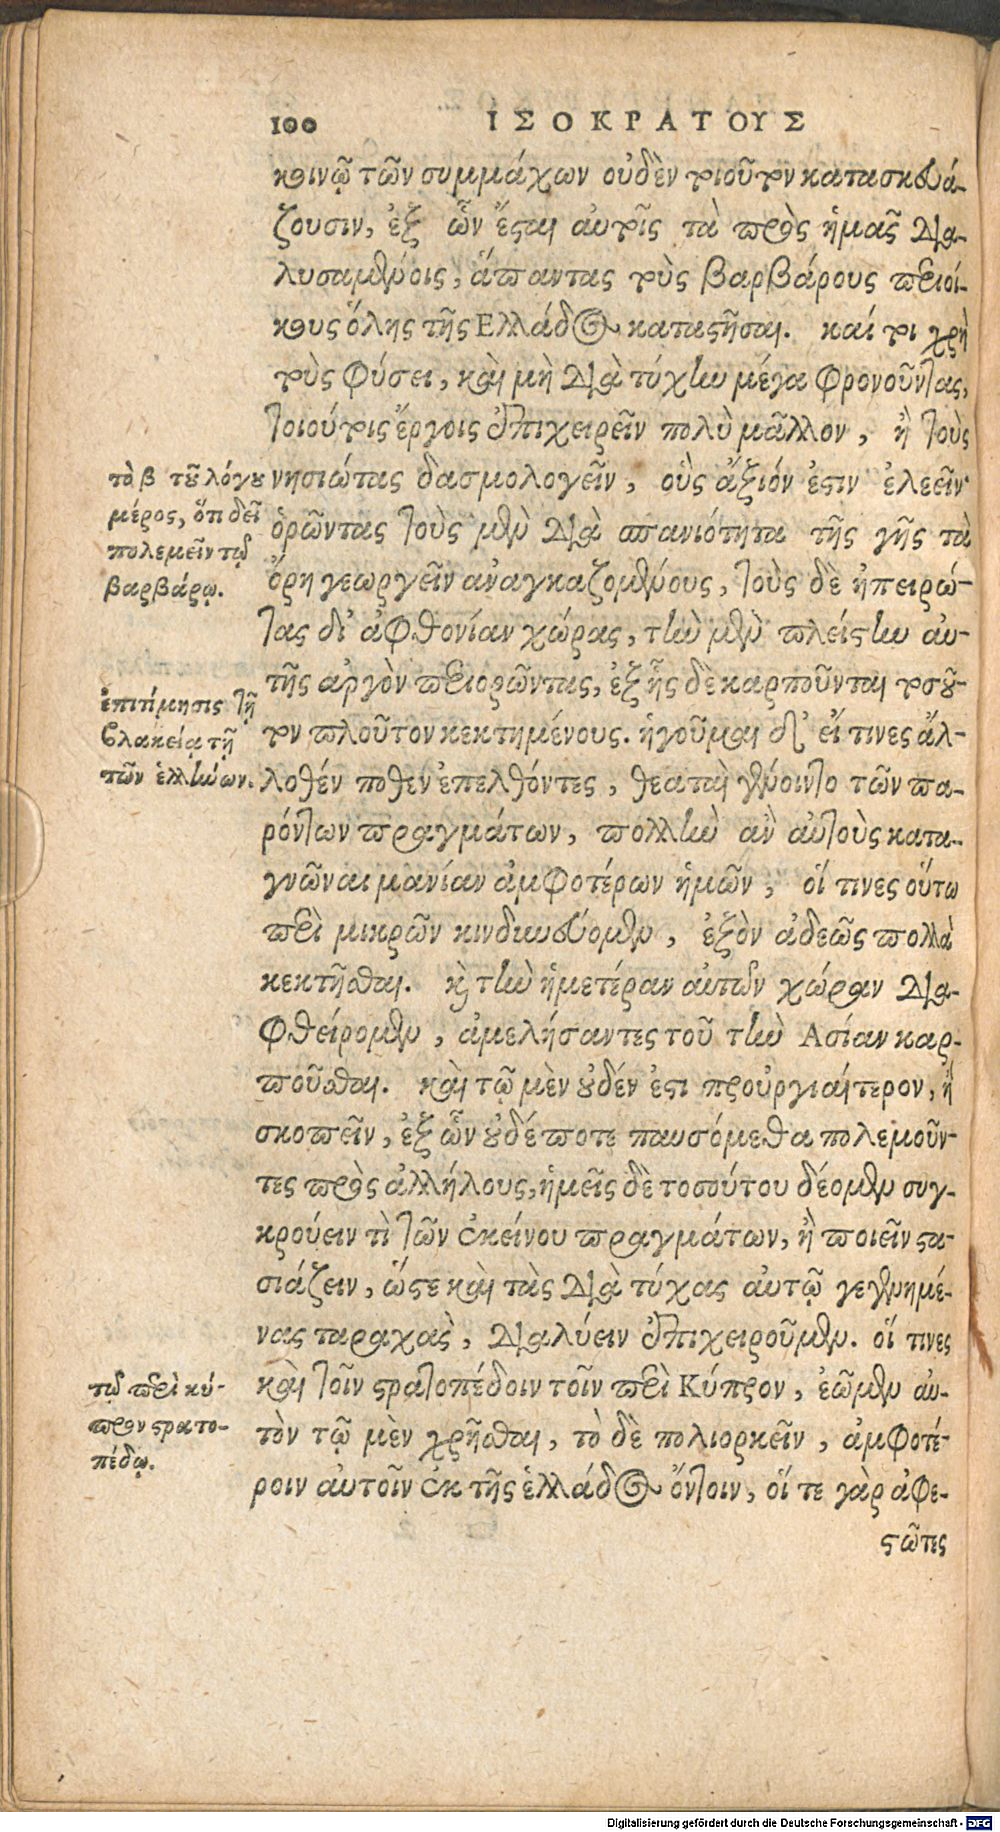 100 ΙΣΟΚΡΑΤΟΥΣ
κοινῷ τῶν συμμάχων οὐδὲν τοιοῦτον κατασκευά-
ζουσιν, ἐξ ὧν ἔσται αὐτοῖς τὰ πρὸς ἡμᾶς δια-
λυσαμένοις, ἅπαντας τοὺς βαρβάρους περιοί-
κους ὅλης τῆς Ελλάδος καταστῆσαι. καί τοι χρὴ
τοὺς φύσει, καὶ μὴ διὰ τύχην μέγα φρονοῦντας,
τοιούτοις ἔργοις ἐπιχειρεῖν πολὺ μᾶλλον, ἢ τοὺς
νησιώτας δασμολογεῖν, οὓς ἄξιόν ἐστιν ἐλεεῖν
ὁρῶντας τοὺς μὲν διὰ σπανιότητα τῆς γῆς τὰ
ὄρη γεωργεῖν ἀναγκαζομένους, τοὺς δὲ ἠπειρώ-
τας δι' ἀφθονίαν χώρας, τὴν μὲν πλείστην αὐ-
τῆς ἀργὸν περιορῶντας, ἐξ ἧς δὲ καρποῦνται τοσοῦ-
τον πλοῦτον κεκτημένους. ἡγοῦμαι δ' εἴ τινες ἄλ-
λοθέν ποθεν ἐπελθόντες, θεαταὶ γένοιντο τῶν πα-
ρόντων πραγμάτων, πολλὴν ἂν αὐτοὺς κατα-
γνῶναι μανίαν ἀμφοτέρων ἡμῶν, οἵ τινες οὕτω
περὶ μικρῶν κινδυνεύομεν, ἐξὸν ἀδεῶς πολλὰ
κεκτῆσθαι. καὶ τὴν ἡμετέραν αὐτῶν χώραν δια-
φθείρομεν, ἀμελήσαντες τοῦ τὴν Ασίαν καρ-
ποῦσθαι. καὶ τῷ μὲν οὐδέν ἐστι προὐργιαίτερον, ἢ
σκοπεῖν, ἐξ ὧν οὐδέποτε παυσόμεθα πολεμοῦν-
τες πρὸς ἀλλήλους, ἡμεῖς δὲ τοσούτου δέομεν συγ-
κρούειν τὶ τῶν ἐκείνου πραγμάτων, ἢ ποιεῖν στα-
σιάζειν, ὥστε καὶ τὰς διὰ τύχας αὐτῷ γεγενημέ-
νας ταραχὰς, διαλύειν ἐπιχειροῦμεν. οἵ τινες
καὶ τοῖν στρατοπέδοιν τοῖν περὶ Κύπρον, ἐῶμεν αὐ-
τὸν τῷ μὲν χρῆσθαι, τὸ δὲ πολιορκεῖν, ἀμφοτέ-
ροιν αὐτοῖν ἐκ τῆς ἑλλάδος ὄντοιν, οἵ τε γὰρ ἀφε-
στῶτες
τὸ β τοῦ λόγου
μέρος, ὅτι δεῖ
πολεμεῖν τῷ
βαρβάρῳ.
ἐπιτίμησις τῇ
βλακείᾳ τῇ
τῶν ἑλλήνων.
τῷ περὶ κύ-
προν στρατο-
πέδῳ.
Digitalisierung gefördert durch die Deutsche Forschungsgemeinschaft - DFG